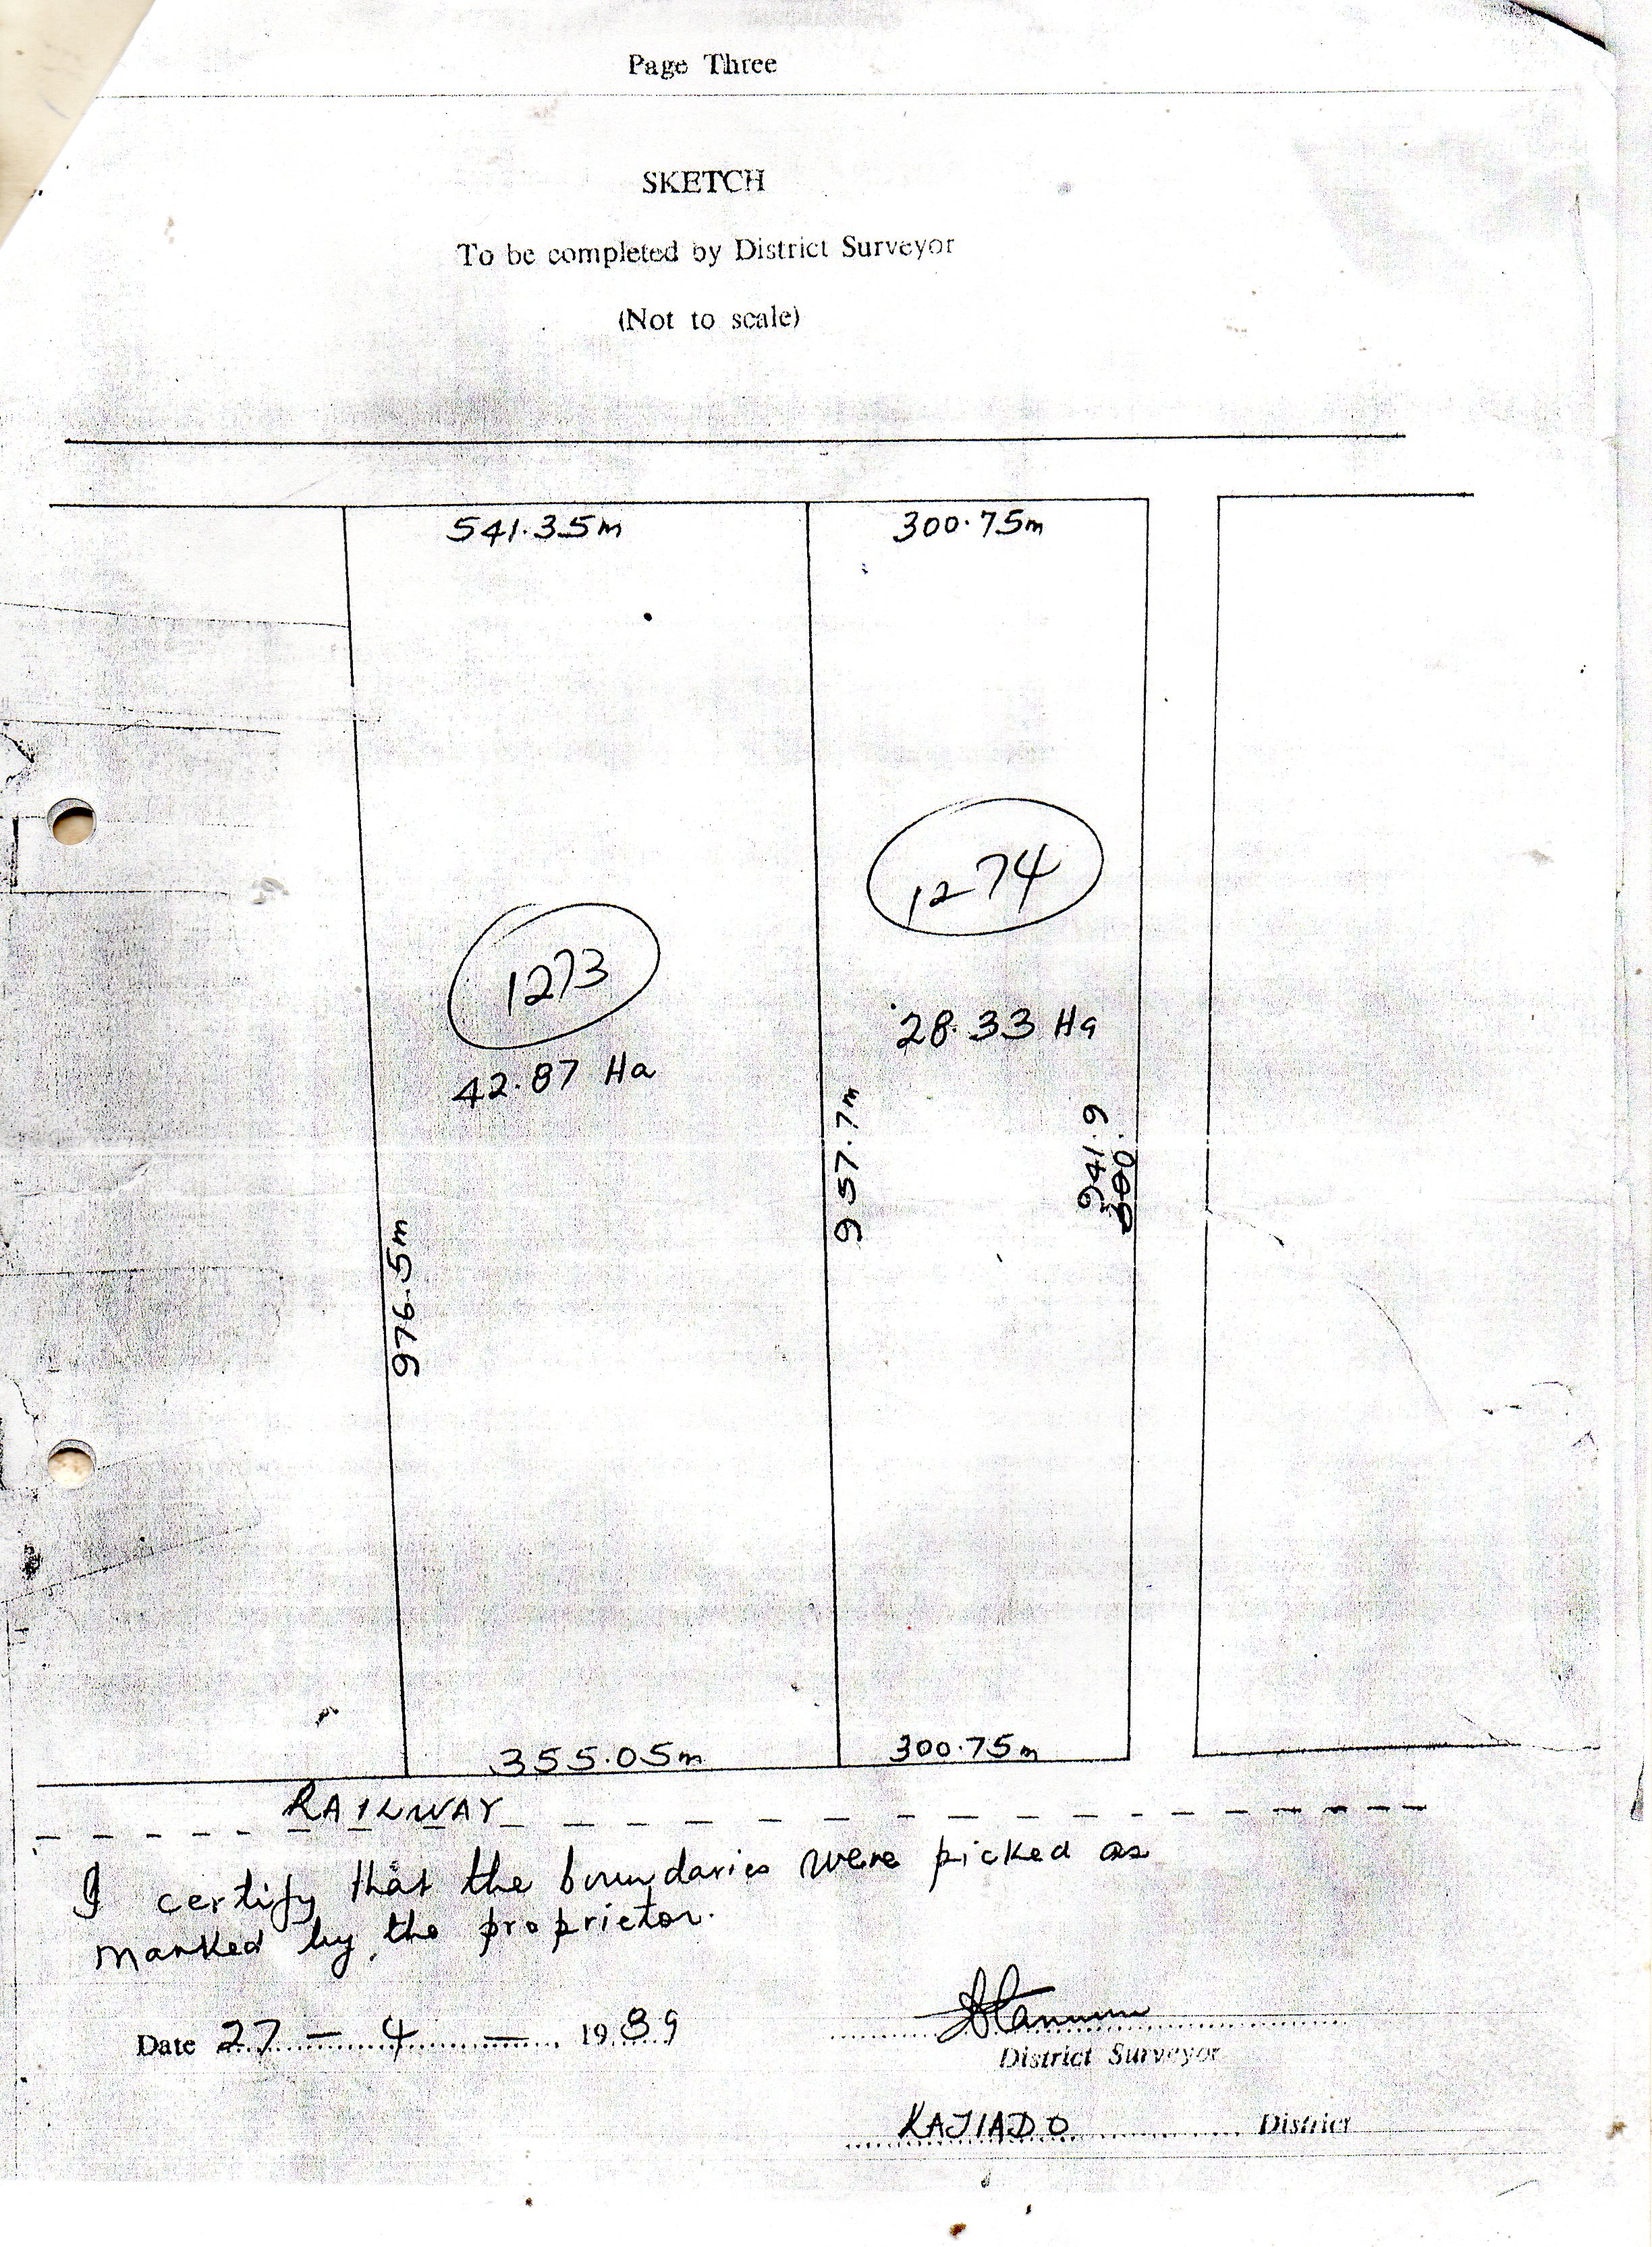 Page Three
SKETCH
To be completed by District Surveyor
(Not to scale)
541.35m
300.75m
1274
1273
28.33 Ha
42.87 Ha
957.7m
941.9
300.
976.5m
355.05m
300.75m
RAILWAY
I certify that the boundaries were picked as
marked by the proprietor.
Date 27 - 4 - 1989
District Surveyor
KAJIADO District